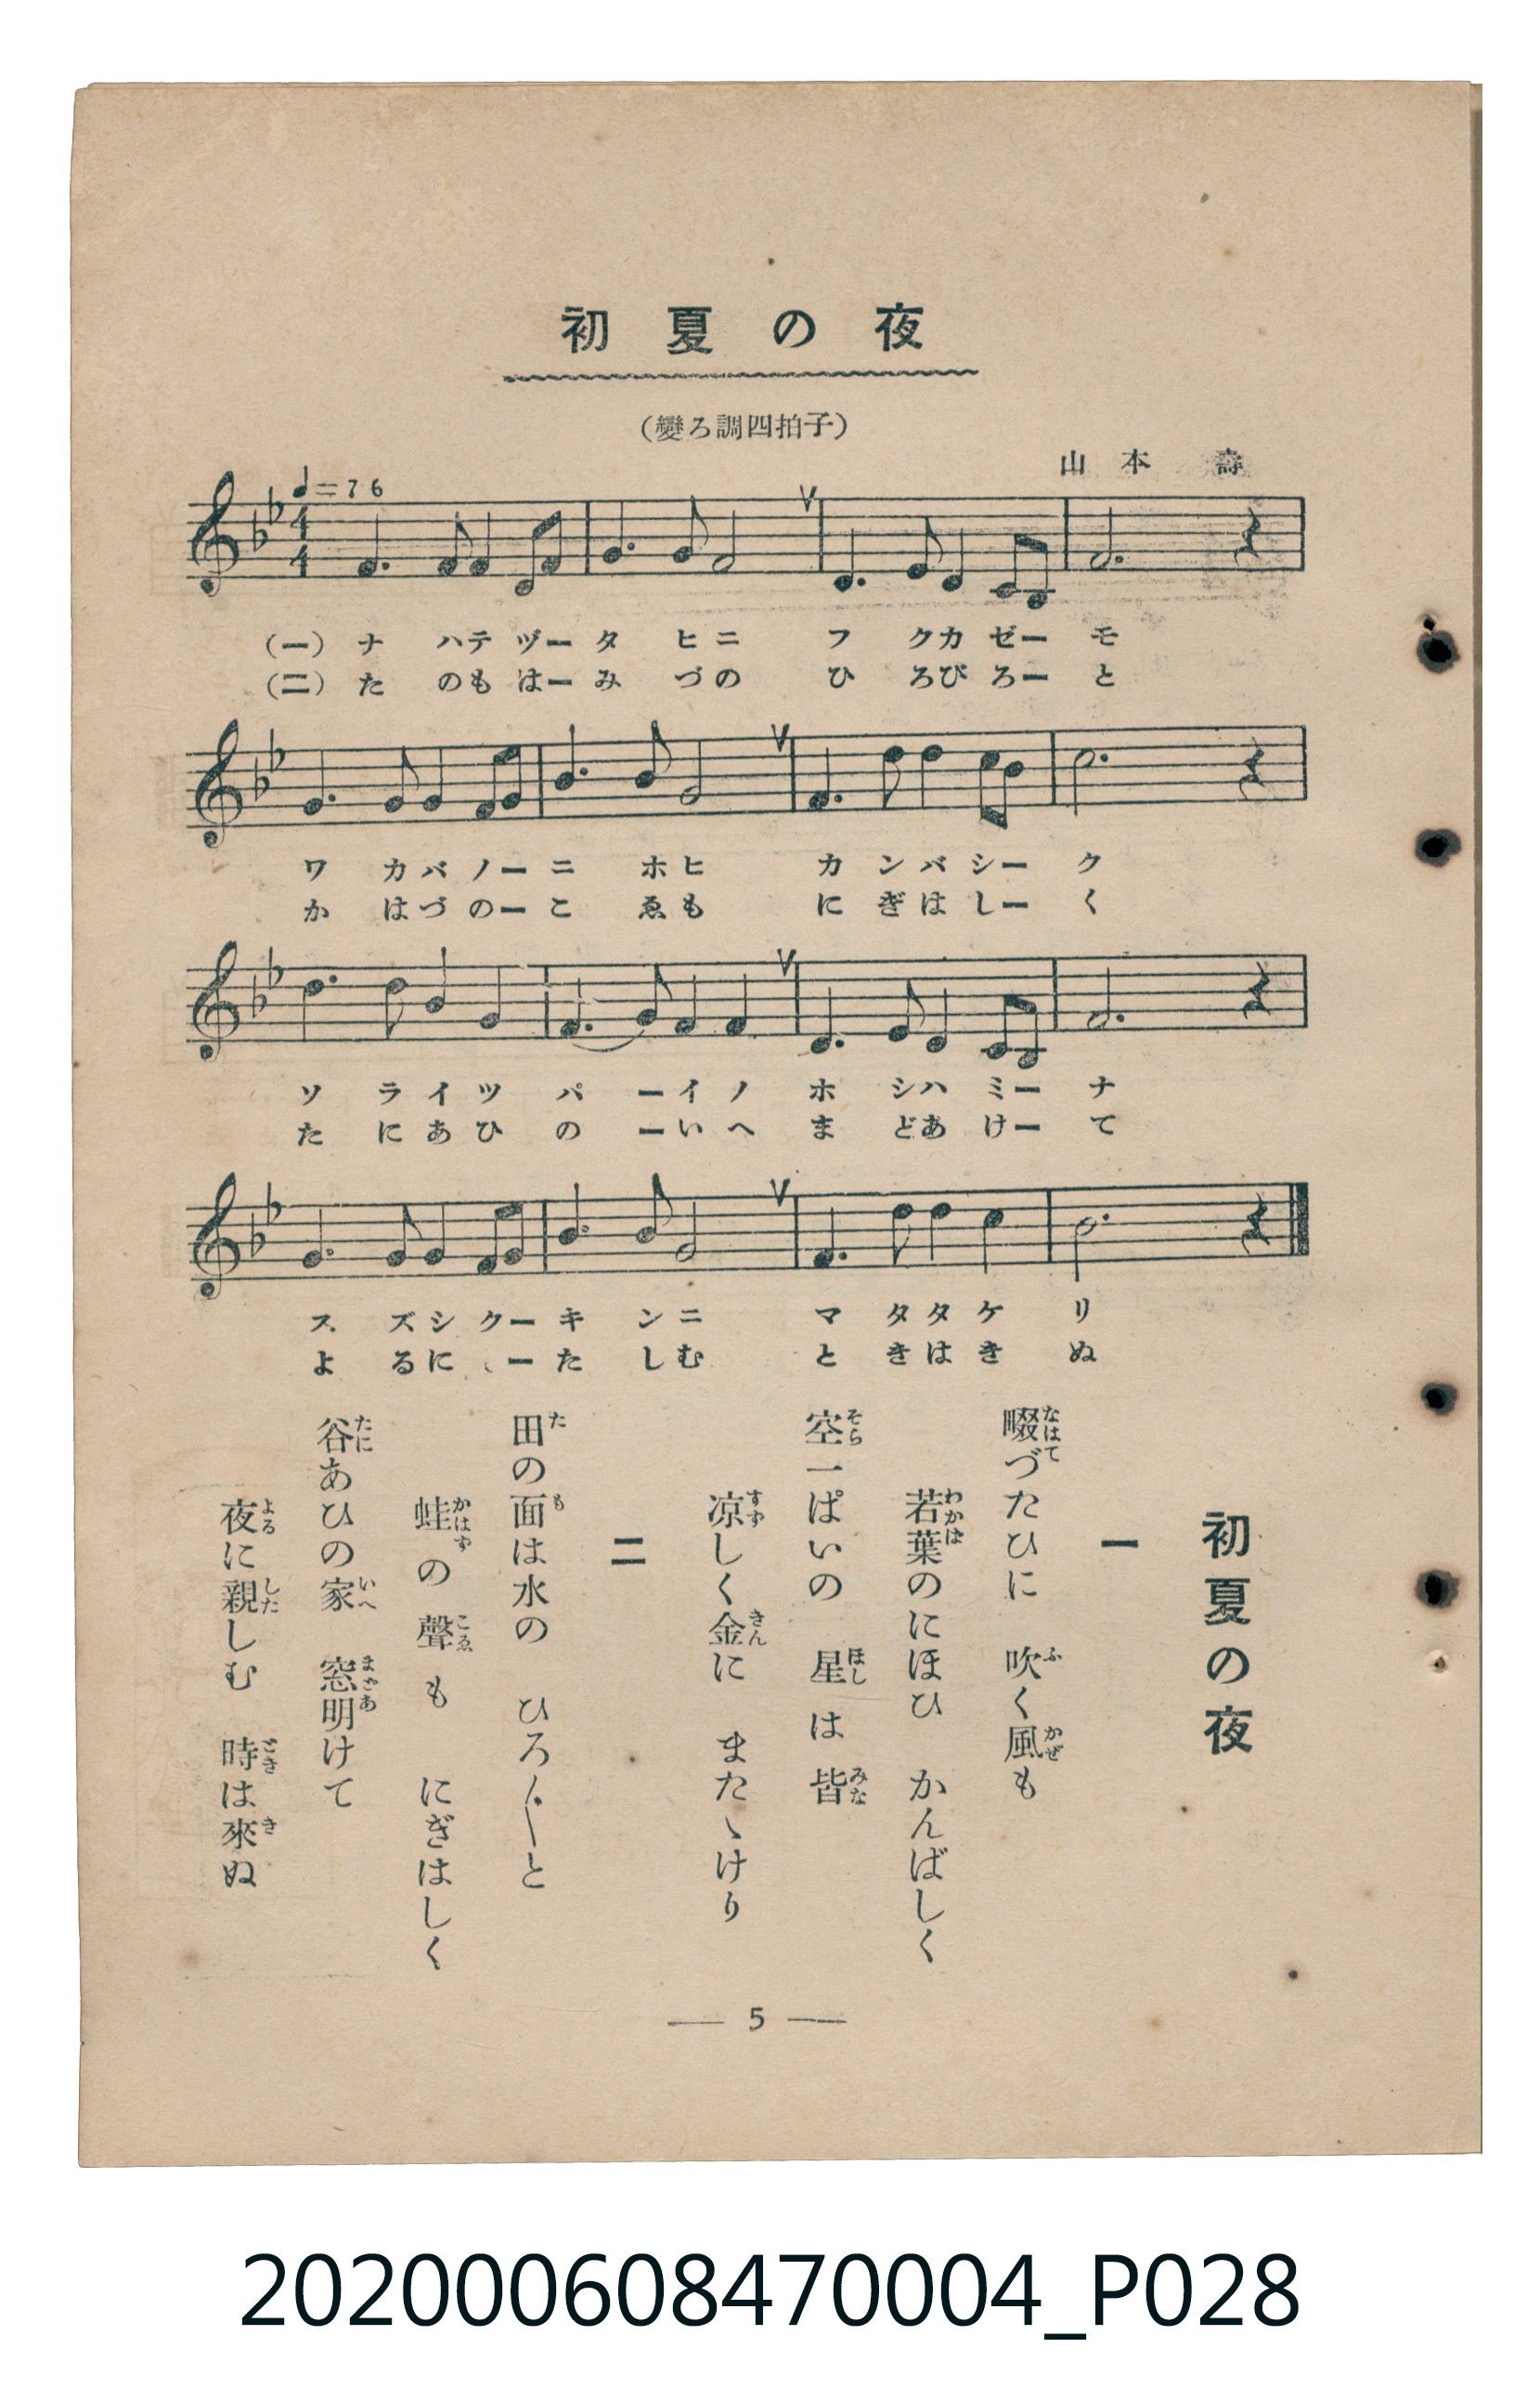 初夏の夜
(變ろ調四拍子)
山本 壽
♩=76
4
4
(一) ナ ハテ ヅー タ ヒニ フ クカ ゼー モ
(二) た のも はー み づの ひ ろび ろー と
ワ カバ ノー ニ ホヒ カ ンバ シー ク
か はづ のー こ ゑも に ぎは しー く
ソ ライツ パ ーイノ ホ シハ ミー ナ
た にあひ の ーいへ ま どあ けー て
ス ズシ クー キ ンニ マ タタケ リ
よ るに ー た しむ と きはき ぬ
初夏の夜
一
畷づたひに 吹く風も
なはて ふ かぜ
若葉のにほひ かんばしく
わかば
空一ぱいの 星は皆
そら ほし みな
凉しく金に またゝけり
すゞ きん
二
田の面は水の ひろ〴〵と
た も
蛙の聲も にぎはしく
かはず こゑ
谷あひの家 窓明けて
たに いへ まどあ
夜に親しむ 時は來ぬ
よる した とき き
— 5 —
202000608470004_P028